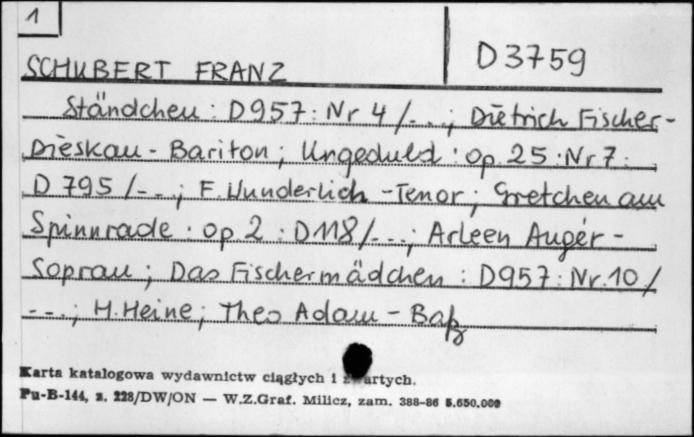 1
D 3759
SCHUBERT FRANZ
Ständchen : D957 : Nr 4 /...; Dietrich Fischer-
Dieskau - Bariton; Ungeduld : op. 25 : Nr 7 :
D 795 /--.; F. Wunderlich - Tenor; Gretchen am
Spinnrade : op 2 : D118/...; Arleen Augér -
Sopran; Das Fischermädchen : D957 : Nr. 10 /
---; H. Heine; Theo Adam - Baß
Karta katalogowa wydawnictw ciągłych i zwartych.
Pu-B-144, z. 228/DW/ON — W.Z.Graf. Milicz, zam. 388-86 5.650.000